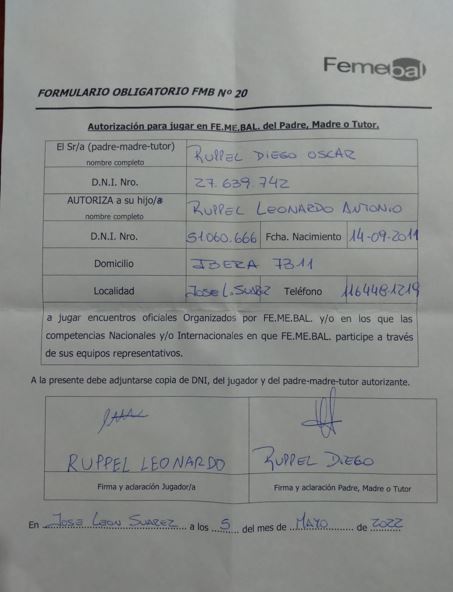 Femebal
FORMULARIO OBLIGATORIO FMB Nº 20
Autorización para jugar en FE.ME.BAL. del Padre, Madre o Tutor.
El Sr/a (padre-madre-tutor) nombre completo RUPPEL DIEGO OSCAR
D.N.I. Nro. 27.639.742
AUTORIZA a su hijo/a nombre completo RUPPEL LEONARDO ANTONIO
D.N.I. Nro. 51060.666 Fcha. Nacimiento 14-09-2011
Domicilio IBERA 7311
Localidad JOSE L. SUAREZ Teléfono 1164481219
a jugar encuentros oficiales Organizados por FE.ME.BAL. y/o en los que las
competencias Nacionales y/o Internacionales en que FE.ME.BAL. participe a través
de sus equipos representativos.
A la presente debe adjuntarse copia de DNI, del jugador y del padre-madre-tutor autorizante.
RUPPEL LEONARDO RUPPEL DIEGO
Firma y aclaración Jugador/a Firma y aclaración Padre, Madre o Tutor
En JOSE LEON SUAREZ a los 5 del mes de MAYO de 2022